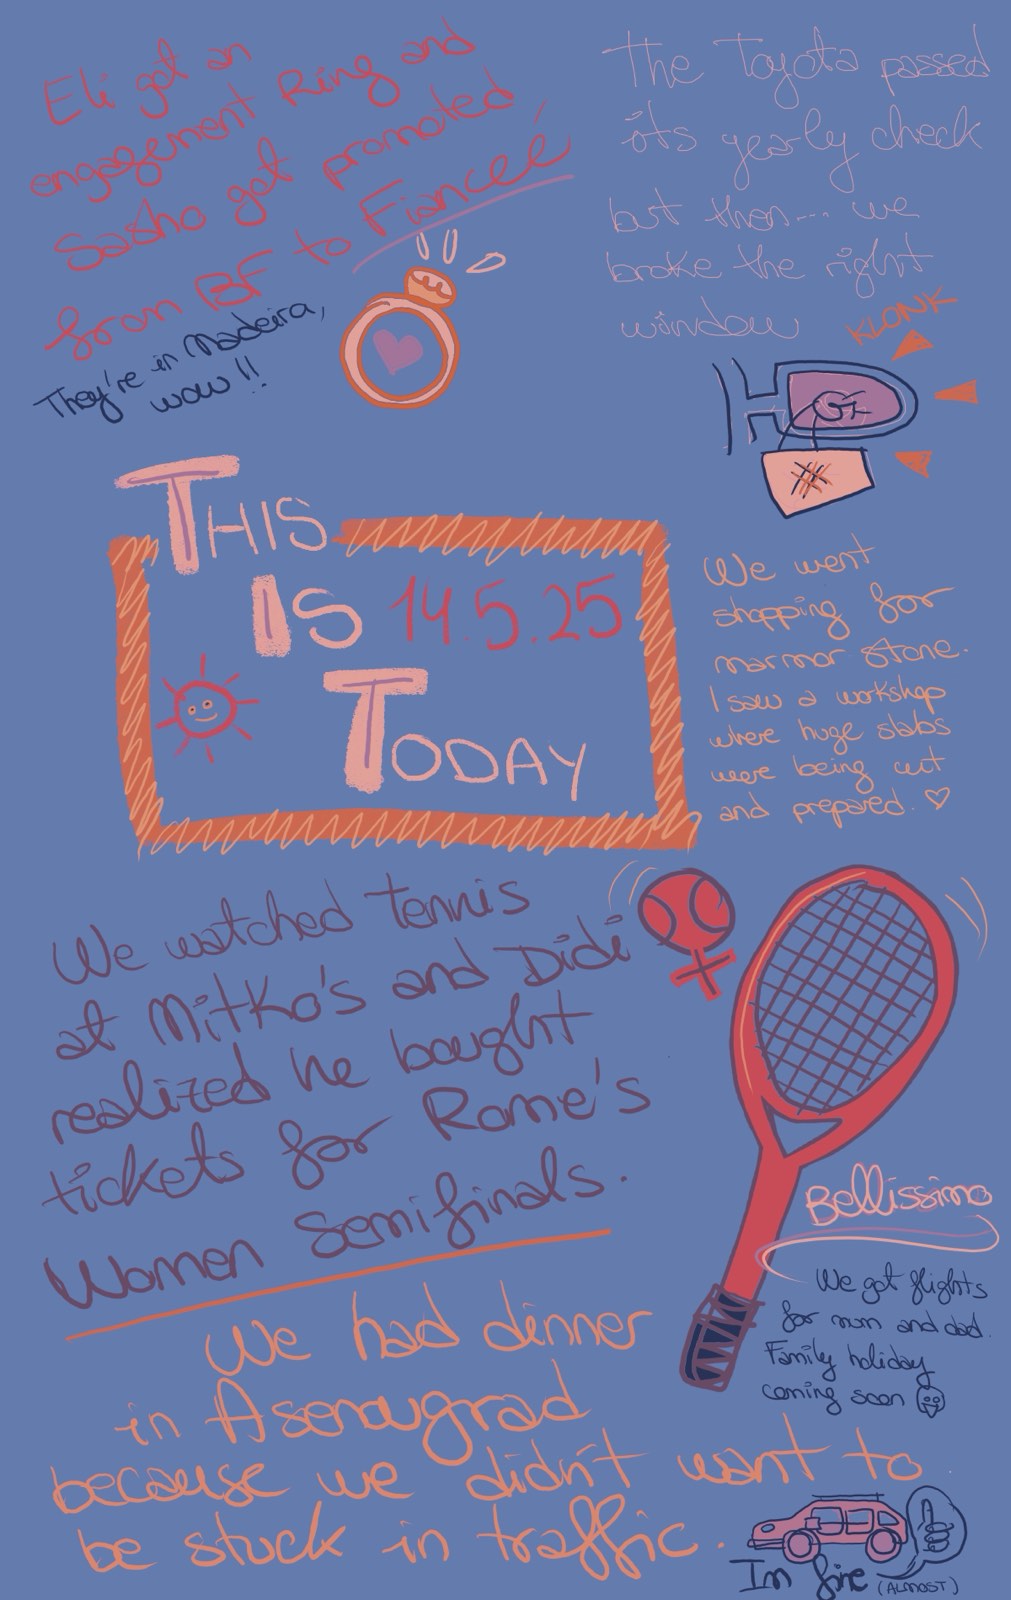 Eli got an
engagement Ring and
Sasho got promoted
from BF to Fianceé
They're in Madeira,
wow!!
The Toyota passed
its yearly check
but then... we
broke the right
window
KLONK
THIS
IS 14.5.25
TODAY
We went
shopping for
marmor stone.
I saw a workshop
where huge slabs
were being cut
and prepared. ♡
We watched tennis
at Mitko's and Didi
realized he bought
tickets for Rome's
Women Semifinals.
Bellissimo
We got flights
for mum and dad.
Family holiday
coming soon
We had dinner
in Asenovgrad
because we didn't want to
be stuck in traffic.
Im fine (ALMOST)